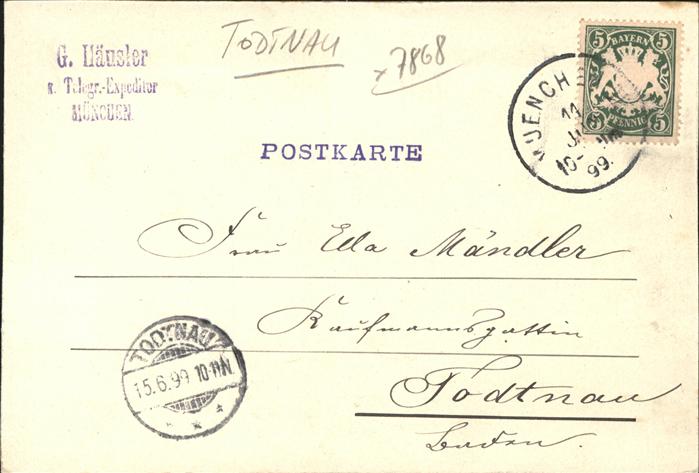 G. Häusler
k. Telegr.-Expeditor
MÜNCHEN.
TODTNAU
x7868
5 BAYERN 5
5 PFENNIG 5
MUENCH
14
10-
99.
POSTKARTE
Frau Ella Mändler
Kaufmannsgattin
Todtnau
Baden.
TODTNAU
15.6.99 10-11N
* * *